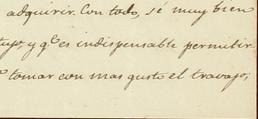 adquirir. Con todo, sé muy bien
y q.e es indispensable permitir
tomar con mas gusto el travajo,